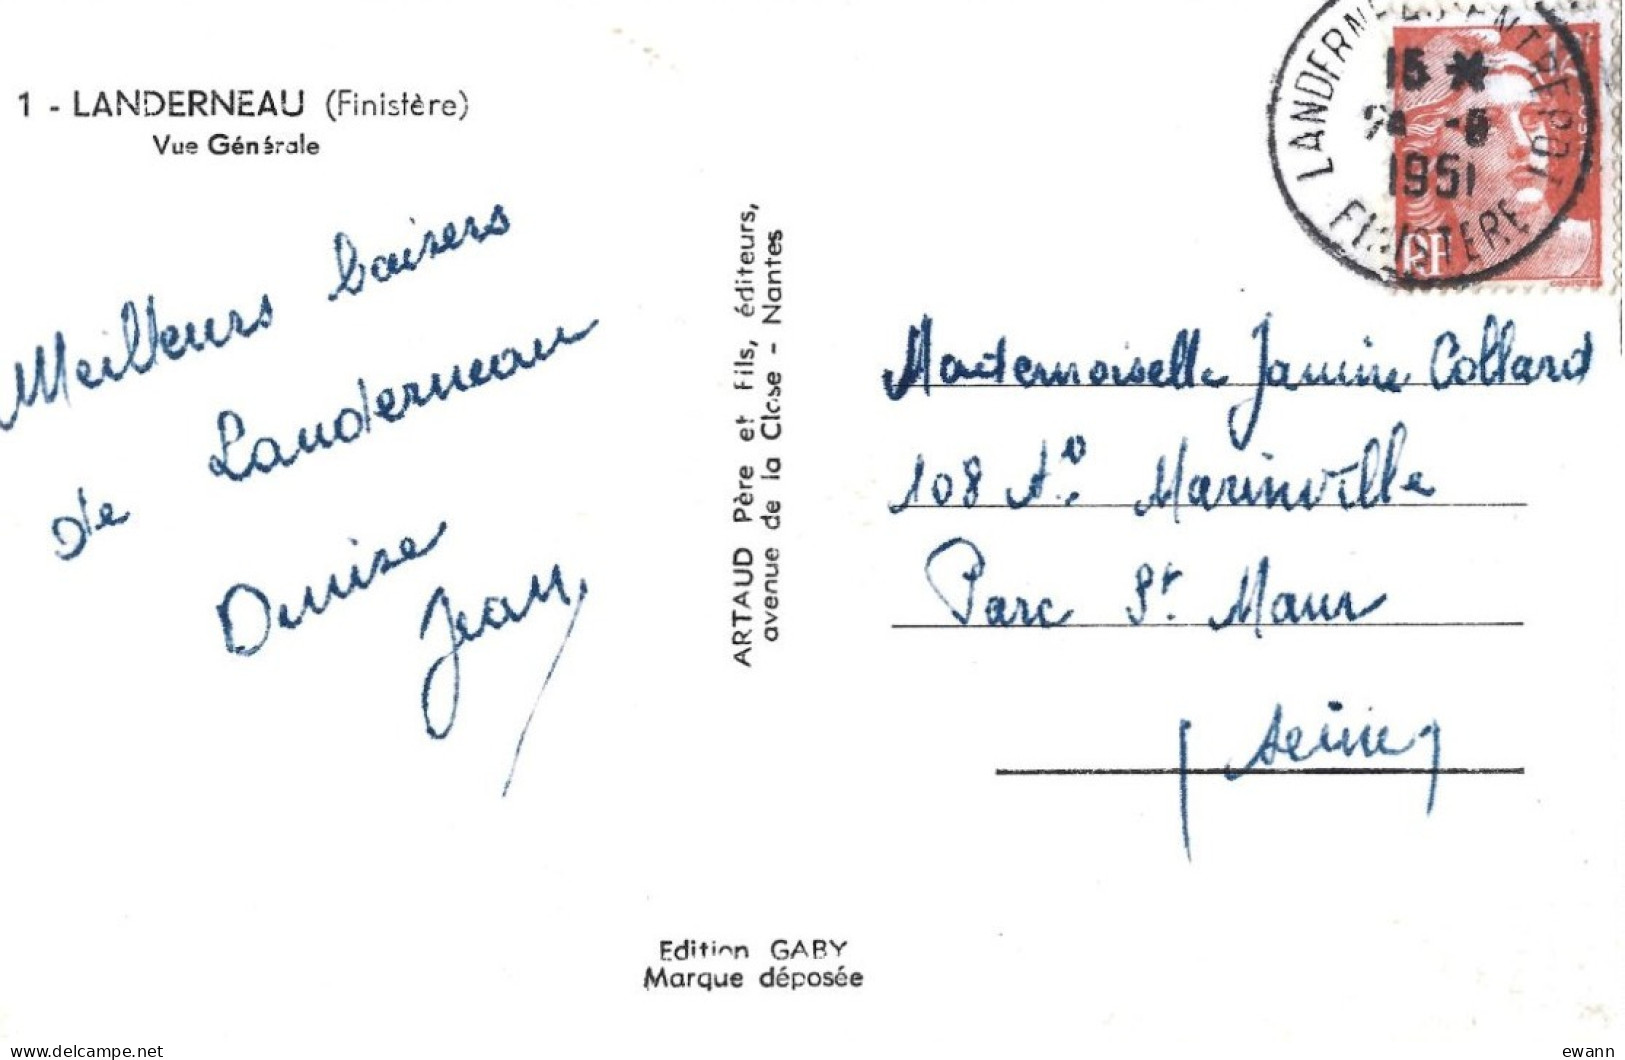 1 - LANDERNEAU (Finistère)
Vue Générale
Meilleurs baisers
de Landerneau
Denise
Jean
ARTAUD Père et Fils, éditeurs,
avenue de la Close - Nantes
LANDERNEAU ENTREPOT
15 *
-8
1951
FINISTERE
12F
RF
Mademoiselle Janine Collard
108 Av. Marinville
Parc St. Maur
(seine)
Edition GABY
Marque déposée
www.delcampe.net
ewann